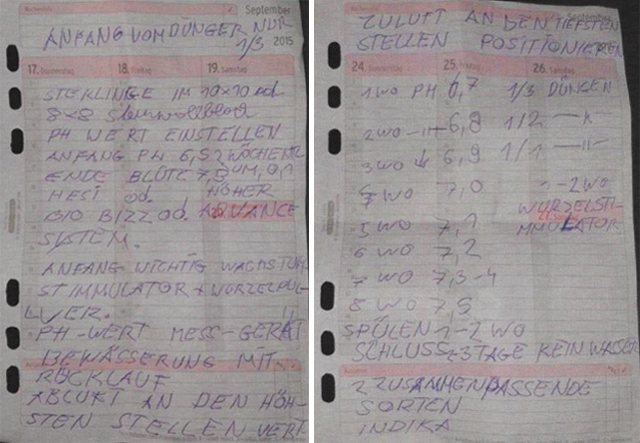 September
ANFANG VOM DÜNGER NUR
1/3 2015
17. Donnerstag 18. Freitag 19. Samstag
STEKLINGE IM 10x10 od.
8x8 Steinwollblock
PH WERT EINSTELLEN
ANFANG PH 6,5 2 WÖCHENTL
ENDE BLÜTE 7,5 UM 0,1
HESI od. HÖHER
BIO BIZZ od. ADVANCE
SYSTEM.
ANFANG WICHTIG WACHSTUM
STIMMULATOR + WURZELPUL-
VER.
PH-WERT MESS-GERÄT
BEWÄSSERUNG MIT
RÜCKLAUF
ABLUFT AN DEN HÖH-
STEN STELLEN VERT.
September
ZULUFT AN DEN TIEFSTEN
STELLEN POSITIONIEREN
24. Donnerstag 25. Freitag 26. Samstag
1 WO PH 6,7 1/3 DÜNGEN
2 WO -11- 6,8 1/2 -11-
3 WO ↓ 6,9 1/1 -11-
WO 7,0 1-2 WO
WURZELSTI-
5 WO 7,1 MMULATOR
6 WO 7,2
7 WO 7,3-4
8 WO 7,5
SPÜLEN 1-2 WO
SCHLUSS 2-3 TAGE KEIN WASSER
2 ZUSAMMENPASSENDE
SORTEN
INDIKA